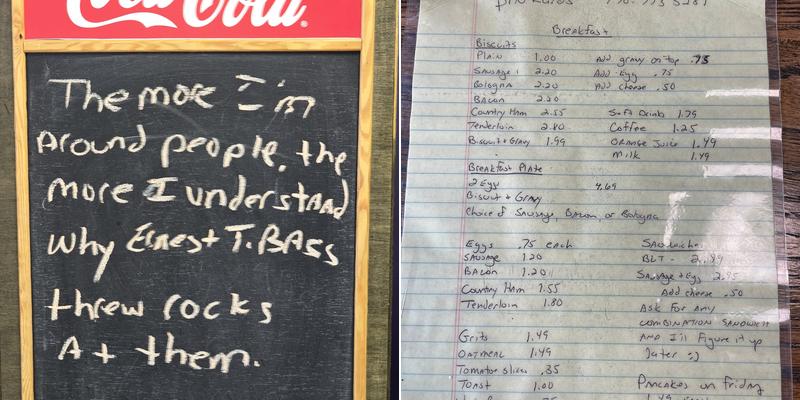 Coca-Cola
The more I'm
Around people, the
more I understand
why Ernest T. BASS
threw rocks
At them.
Breakfast
Biscuits
Plain 1.00 Add gravy on top .75
Sausage 2.20 Add Egg .75
Bologna 2.20 Add cheese .50
Bacon 2.20
Country Ham 2.55 Soft Drink 1.79
Tenderloin 2.80 Coffee 1.25
Biscuit + Gravy 1.99 Orange Juice 1.49
Milk 1.49
Breakfast Plate
2 Egg 4.69
Biscuit + Gravy
Choice of Sausage, Bacon, or Bologna
Eggs .75 each Sandwiches
Sausage 1.20 BLT - 2.49
Bacon 1.20 Sausage + Egg 2.95
Country Ham 1.55 Add cheese .50
Tenderloin 1.80 Ask For Any
COMBINATION SANDWICH
Grits 1.49 And I'll Figure it up
OATMEAL 1.49 later :)
Tomato slices .35
Toast 1.00 Pancakes on friday